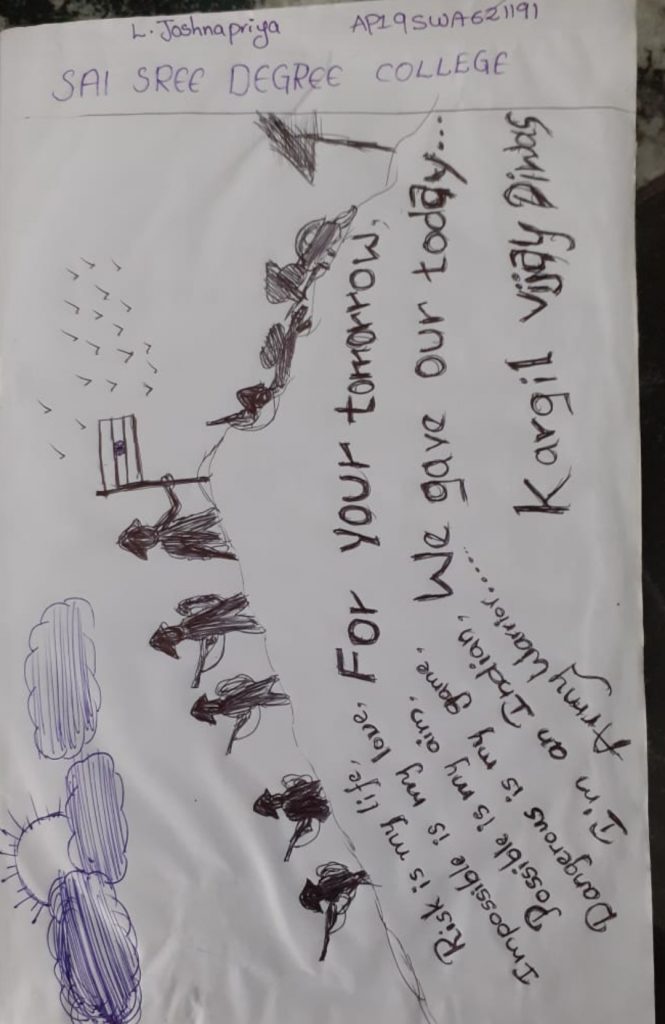 L. Joshnapriya AP19SWA621191
SAI SREE DEGREE COLLEGE
For your tomorrow,
We gave our today...
Kargil vijay Diwas
Risk is my life,
Impossible is my love,
Possible is my aim,
Dangerous is my game.
I'm an Indian,
Army Warrior.....